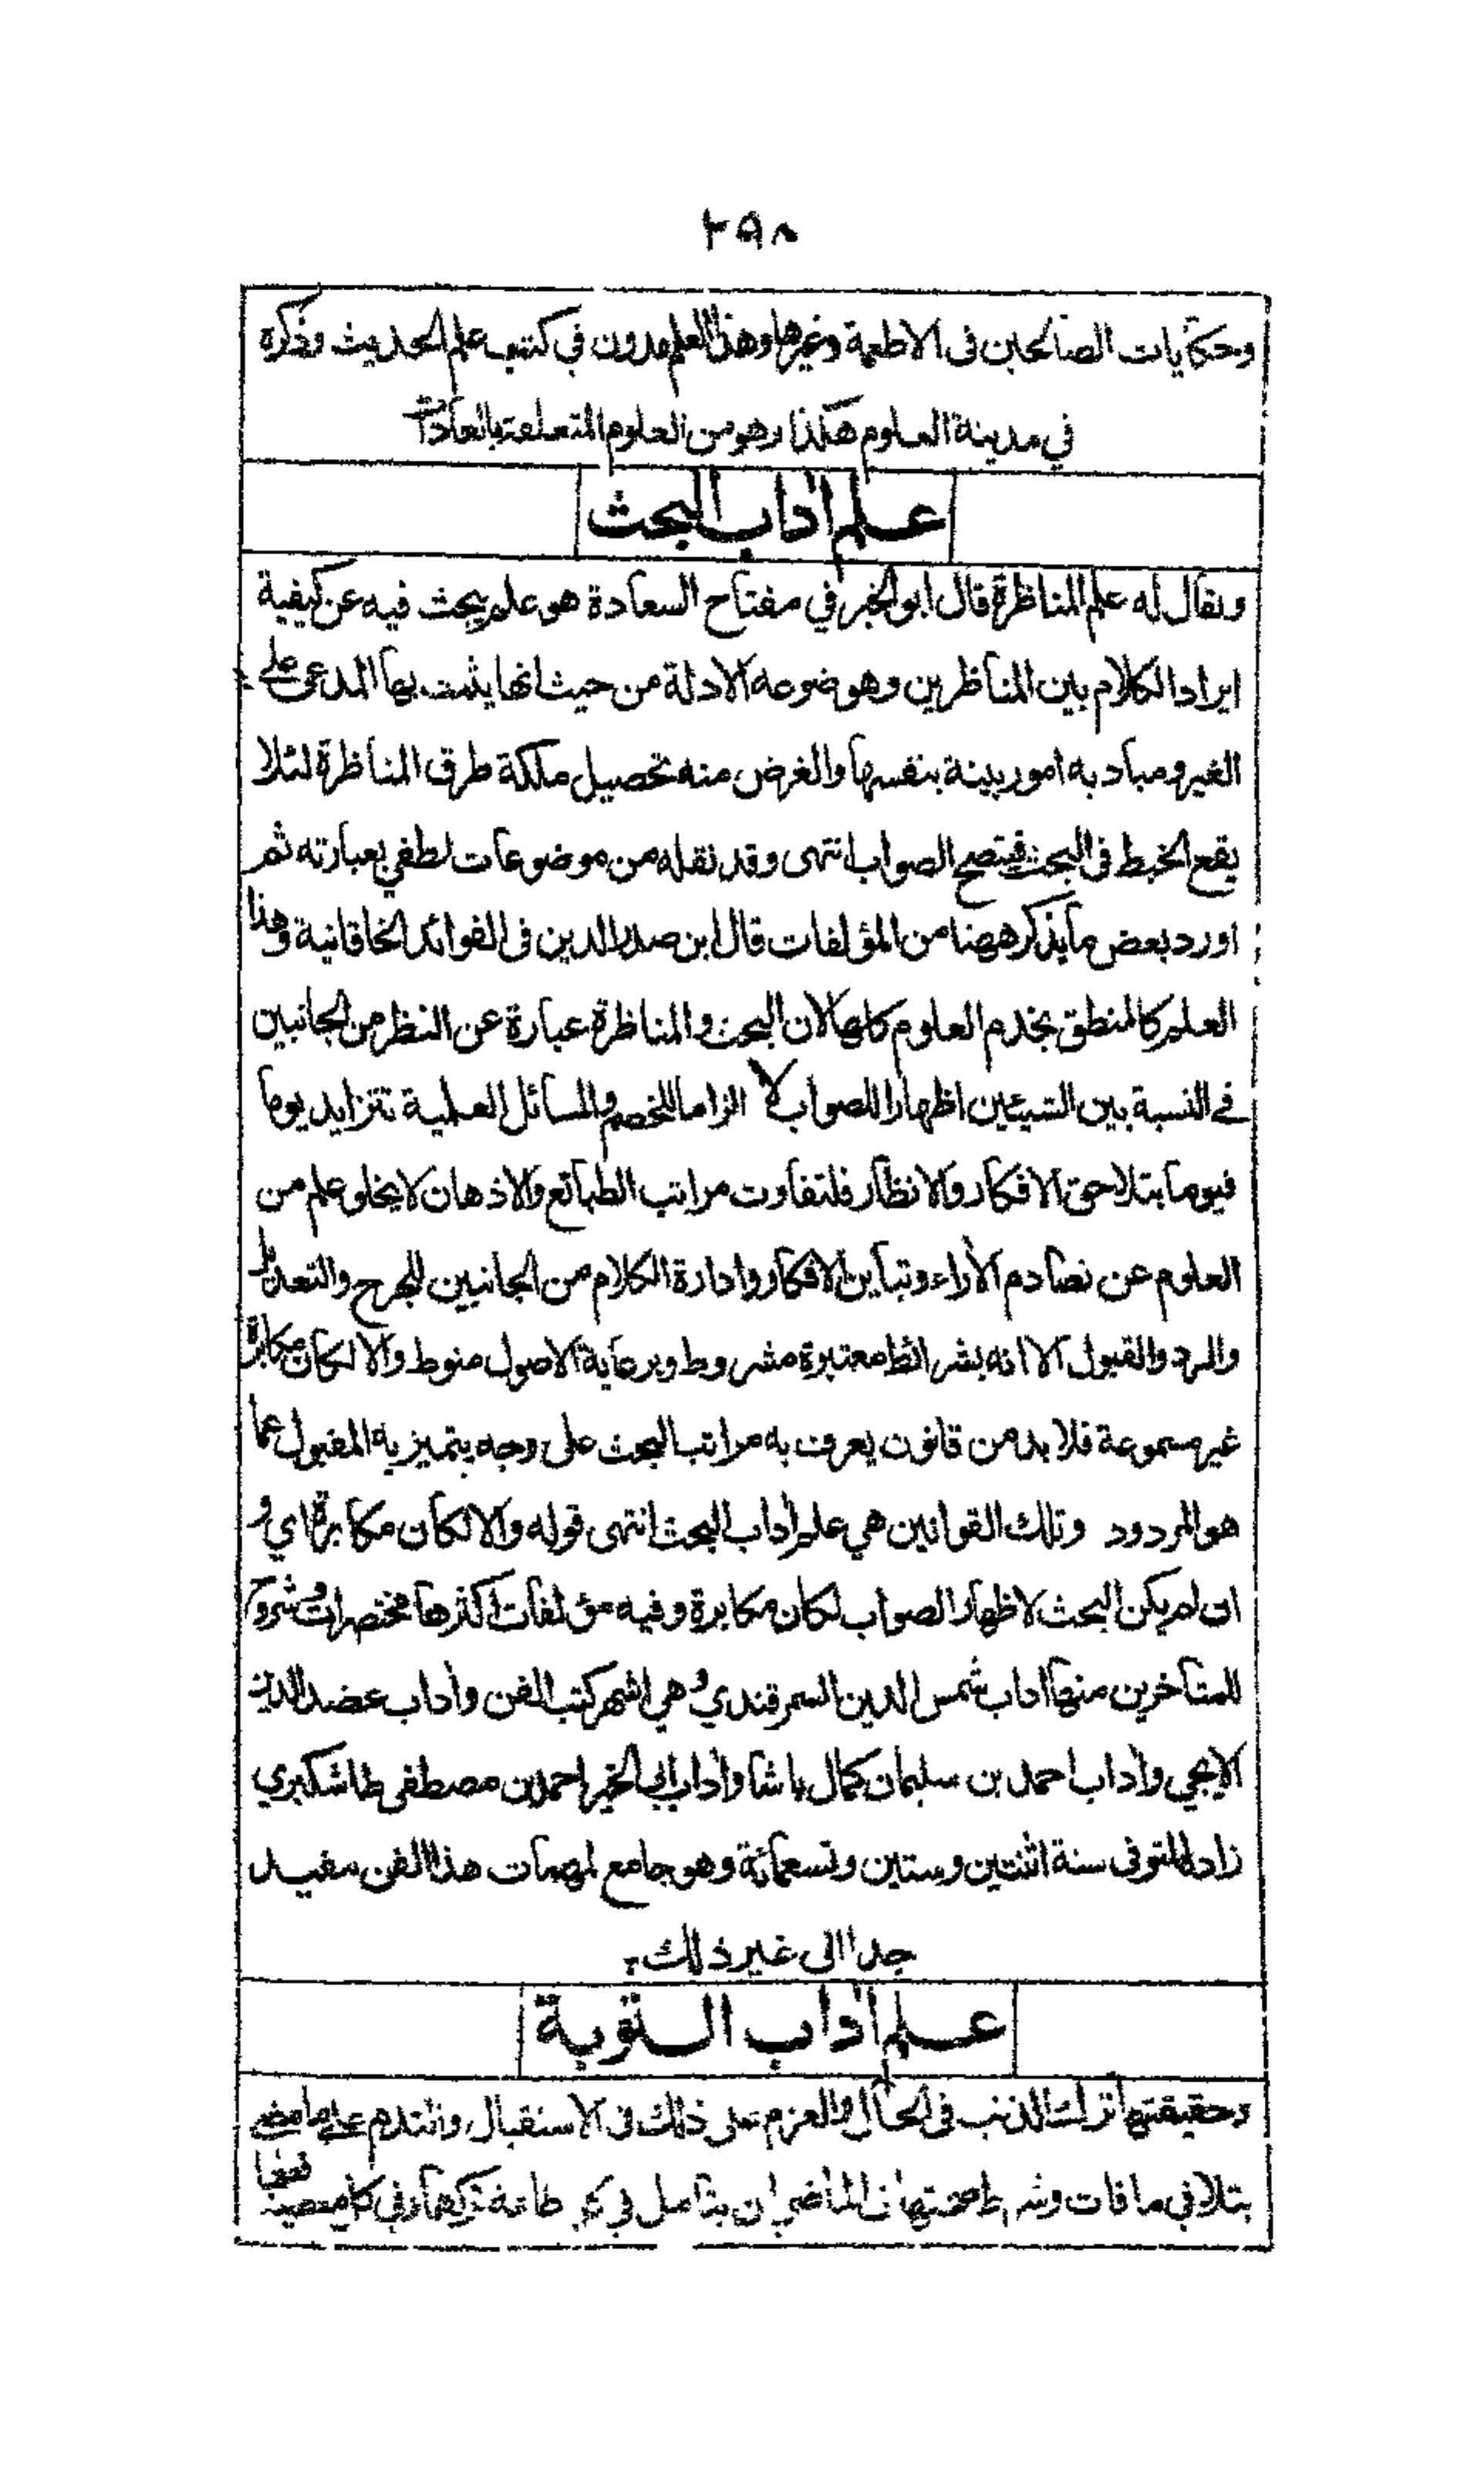 ٢٩٨
وحكايات الصالحين فى الاطعمة وغيرها وهذا العلم مدون في كتب علم الحديث وذكره
في مدينة العلوم هكذا وهو من العلوم المتعلقة بالعادات
علم اداب البحث
ويقال له علم المناظرة قال ابو الخير في مفتاح السعادة هو علم يبحث فيه عن كيفية
ايراد الكلام بين المناظرين وموضوعه الادلة من حيث انها يثبت بها المدعى على
الغير ومباديه امور بينة بنفسها والغرض منه تحصيل ملكة طرق المناظرة لئلا
يقع الخبط فى البحث فيتضح الصواب انتهى وقد نقله من موضوعات لطفي بعبارته ثم
اورد بعض ما يذكر ههنا من المؤلفات قال ابن صدر الدين فى الفوائد الخاقانية وهذا
العلم كالمنطق يخدم العلوم كلها لان البحث والمناظرة عبارة عن النظر من الجانبين
فى النسبة بين الشيئين اظهارا للصواب لا الزاما للخصم والمسائل العلمية تتزايد يوما
فيوما بتلاحق الافكار والانظار فلتفاوت مراتب الطبائع والاذهان لا يخلو علم من
العلوم عن تصادم الأراء وتباين الافكار وادارة الكلام من الجانبين للجرح والتعديل
والرد والقبول الا انه بشرائط معتبرة مشروط وبرعاية الاصول منوط والا لكان مكابرة
غير مسموعة فلا بد من قانون يعرف به مراتب البحث على وجه يتميز به المقبول عما
هو المردود وتلك القوانين هي علم أداب البحث انتهى قوله والا لكان مكابرة اي و
ان لم يكن البحث لاظهار الصواب لكان مكابرة وفيه مؤلفات اكثرها مختصرات وشروح
للمتأخرين منها اداب شمس الدين السمرقندي وهي اشهر كتب الفن وأداب عضد الدين
الايجي وأداب احمد بن سليمان كمال باشا وأداب ابي الخير احمد بن مصطفى طاشكبري
زاده المتوفى سنة اثنتين وستين وتسعمائة وهو جامع لمهمات هذا الفن مفيد
جدا الى غير ذلك
علم أداب التوبة
وحقيقتها ترك الذنب فى الحال والعزم على ذلك فى الاستقبال والتندم على ما مضى
بتلافي ما فات وشرط صحتها فى الماضي ان يتأمل في كم طاعة تركها وفي كم معصية فعلها